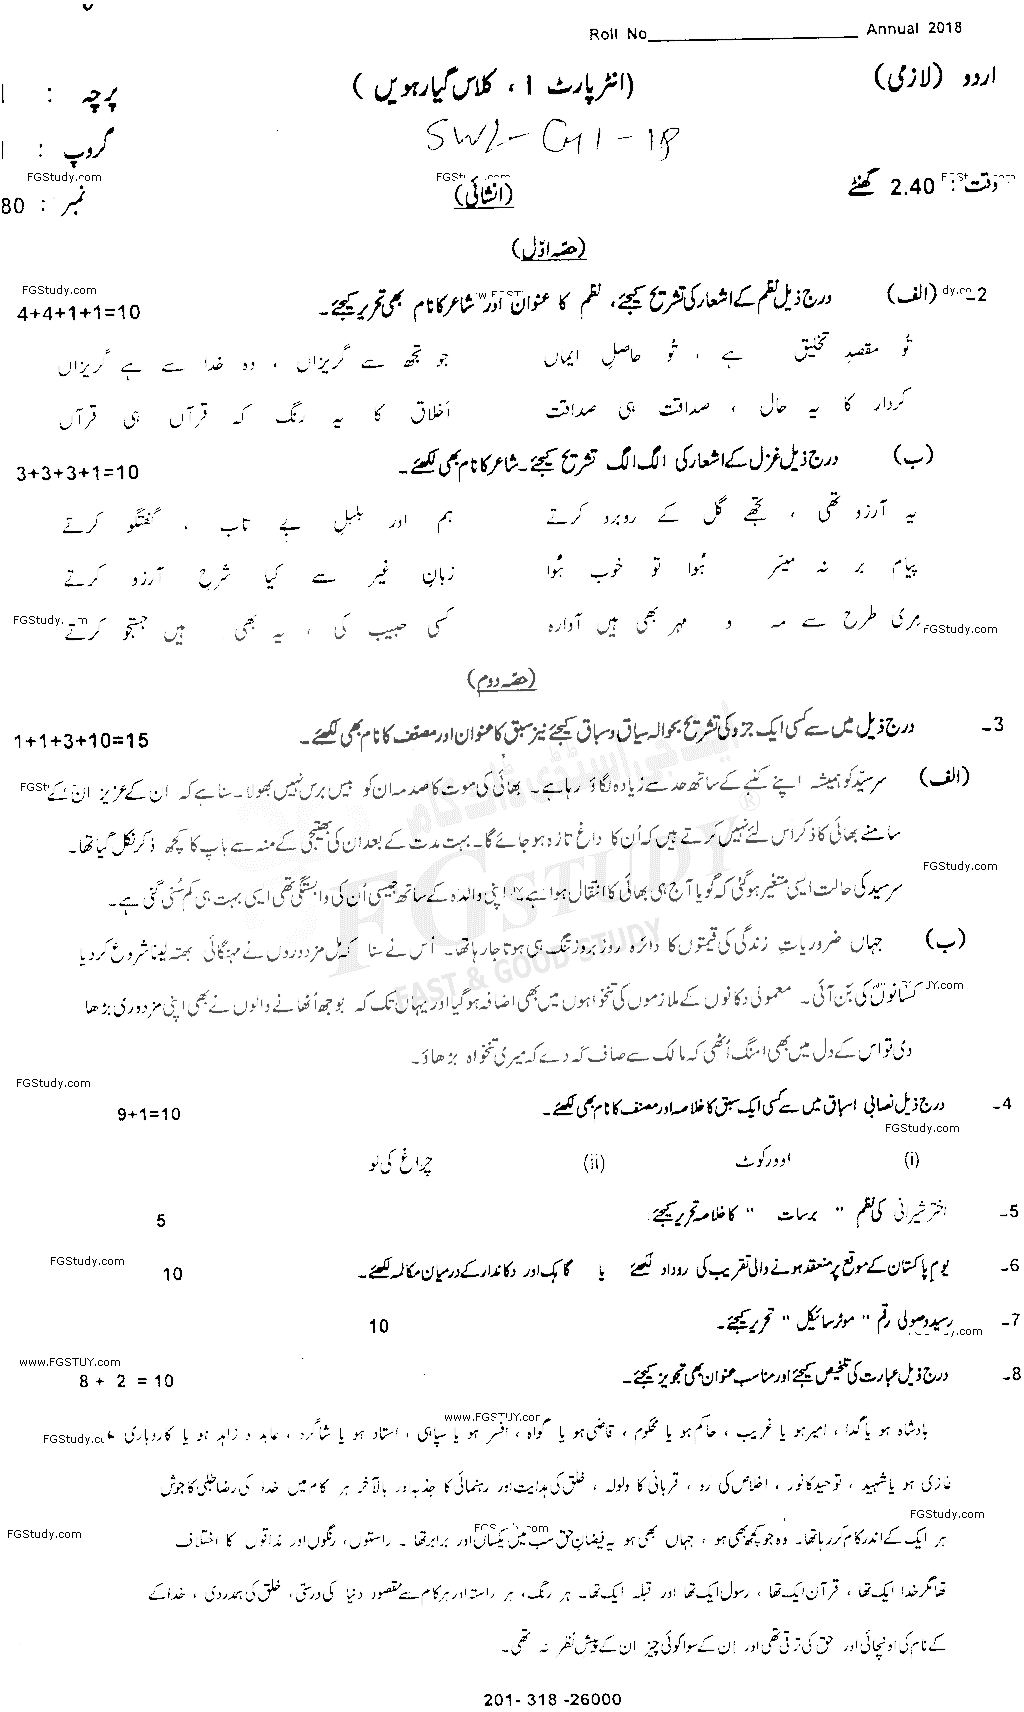 Roll No____________ Annual 2018
اردو (لازمی) (انٹر پارٹ I ، کلاس گیارھویں) پرچہ : I
SWL-G1-18 گروپ : I
FGStudy.com
وقت : 2.40 گھنٹے (انشائی) نمبر : 80
(حصّہ اوّل)
FGStudy.com
2۔ (الف) درج ذیل نظم کے اشعار کی تشریح کیجئے، نظم کا عنوان اور شاعر کا نام بھی تحریر کیجئے۔ 4+4+1+1=10
تُو مقصدِ تخلیق ہے ، تُو حاصلِ ایماں جو تجھ سے گریزاں ، وہ خدا سے ہے گریزاں
کردار کا یہ حال ، صداقت ہی صداقت اخلاق کا یہ رنگ کہ قرآں ہی قرآں
(ب) درج ذیل غزل کے اشعار کی الگ الگ تشریح کیجئے۔ شاعر کا نام بھی لکھئے۔ 3+3+3+1=10
یہ آرزو تھی ، تجھے گل کے روبرو کرتے ہم اور بلبلِ بے تاب ، گفتگو کرتے
پیام بر نہ میسّر ہُوا تو خوب ہُوا زبانِ غیر سے کیا شرحِ آرزو کرتے
مری طرح سے مہ و مہر بھی ہیں آوارہ کسی حبیب کی ، یہ بھی ہیں جستجو کرتے
FGStudy.com
(حصّہ دوم)
3۔ درج ذیل میں سے کسی ایک جزو کی تشریح بحوالہ سیاق و سباق کیجئے نیز سبق کا عنوان اور مصنف کا نام بھی لکھئے۔ 1+1+3+10=15
(الف) سرسیّد کو ہمیشہ اپنے کنبے کے ساتھ حد سے زیادہ لگاؤ رہا ہے۔ بھائی کی موت کا صدمہ ان کو بیس برس نہیں بھولا۔ سنا ہے کہ ان کے عزیز ان کے
سامنے بھائی کا ذکر اس لئے نہیں کرتے ہیں کہ اُن کا داغ تازہ ہو جائے گا۔ بہت مدت کے بعد ان کی بھتیجی کے منہ سے باپ کا کچھ ذکر نکل گیا تھا۔
FGStudy.com
سرسید کی حالت ایسی متغیر ہو گئی کہ گویا آج ہی بھائی کا انتقال ہوا ہے۔ اپنی والدہ کے ساتھ جیسی اُن کی وابستگی تھی ایسی بہت ہی کم سُنی گئی ہے۔
FGSTUDY
FAST & GOOD STUDY
(ب) جہاں ضروریاتِ زندگی کی قیمتوں کا دائرہ روز بروز تنگ ہی ہوتا جا رہا تھا۔ اُس نے سنا کہ مل مزدوروں نے مہنگائی بھتہ لینا شروع کر دیا
کسانوں کی بَن آئی۔ معمولی دکانوں کے ملازموں کی تنخواہوں میں بھی اضافہ ہو گیا اور یہاں تک کہ بوجھ اُٹھانے والوں نے بھی اپنی مزدوری بڑھا
دی تو اس کے دل میں بھی امنگ اُٹھی کہ مالک سے صاف کہہ دے کہ میری تنخواہ بڑھاؤ۔
FGStudy.com
4۔ درج ذیل نصابی اسباق میں سے کسی ایک سبق کا خلاصہ اور مصنف کا نام بھی لکھئے۔ 9+1=10
FGStudy.com
(i) اوورکوٹ (ii) چراغ کی لو
5۔ اختر شیرانی کی نظم " برسات " کا خلاصہ تحریر کیجئے 5
FGStudy.com
6۔ یومِ پاکستان کے موقع پر منعقد ہونے والی تقریب کی روداد لکھئے یا گاہک اور دکاندار کے درمیان مکالمہ لکھئے۔ 10
7۔ رسید وصولی رقم " موٹر سائیکل " تحریر کیجئے۔ 10
www.FGSTUY.com
8۔ درج ذیل عبارت کی تلخیص کیجئے اور مناسب عنوان بھی تجویز کیجئے۔ 8 + 2 = 10
www.FGSTUY.com
بادشاہ ہو یا گدا ، امیر ہو یا غریب ، حاکم ہو یا محکوم ، قاضی ہو یا گواہ ، افسر ہو یا سپاہی ، استاد ہو یا شاگرد ، عابد و زاہد ہو یا کاروباری ،
غازی ہو یا شہید ، توحید کا نور ، اخلاص کی رو ، قربانی کا ولولہ ، خلق کی ہدایت اور رہنمائی کا جذبہ اور بالآخر ہر کام میں خدا کی رضا طلبی کا جوش
FGStudy.com
ہر ایک کے اندر کام کر رہا تھا۔ وہ جو کچھ بھی ہو ، جہاں بھی ہو یہ فیضانِ حق سب میں یکساں اور برابر تھا ۔ راستوں، رنگوں اور مذاقوں کا اختلاف
تھا مگر خدا ایک تھا ، قرآن ایک تھا ، رسول ایک تھا اور قبلہ ایک تھا۔ ہر رنگ، ہر راستہ اور ہر کام سے مقصود دنیا کی درستی، خلق کی ہمدردی ، خدا کے
کے نام کی اونچائی اور حق کی ترقی تھی اور اِن کے سوا کوئی چیز ان کے پیش نظر نہ تھی۔
201- 318 -26000